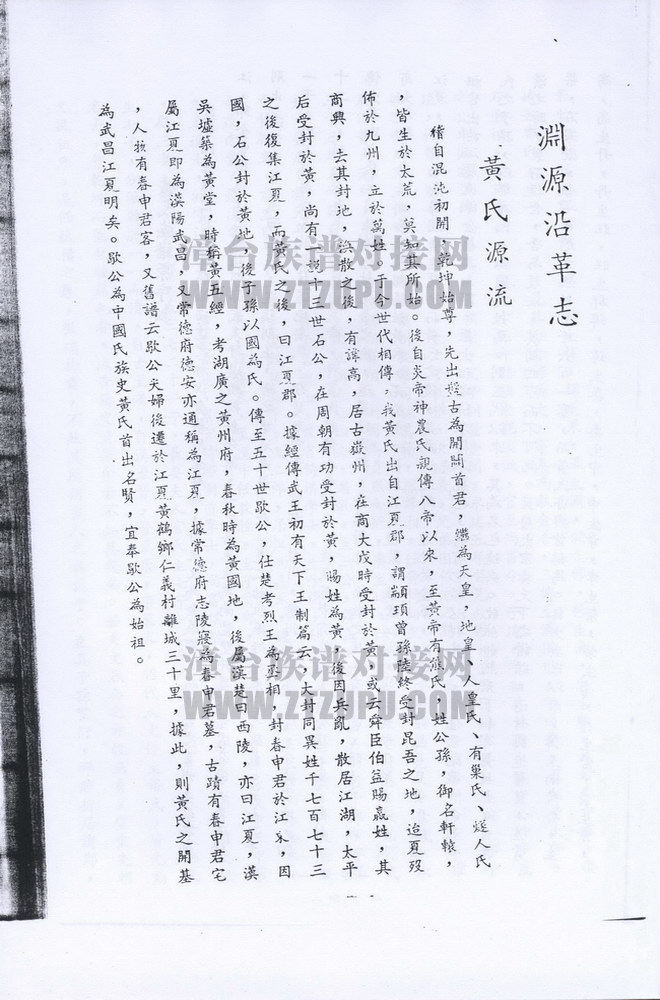 淵源沿革志
黃氏源流
稽自混沌初開，乾坤始尊，先出盤古為開闢首君，繼為天皇，地皇、人皇氏、有巢氏、燧人氏
，皆生於太荒，莫知其所始。後自炎帝神農氏親傳八帝以來，至黃帝有熊氏，姓公孫，御名軒轅，
佈於九州，立於萬姓。于今世代相傳，我黃氏出自江夏郡，謂顓頊曾孫陸終受封昆吾之地，迨夏歿
商興，去其封地，渙散之後，有諱高，居古嶽州，在商大戊時受封於黃，或云舜臣伯益賜嬴姓，其
后受封於黃，尚有一說十三世石公，在周朝有功受封於黃，賜姓為黃，後因兵亂，散居江湖，太平
之後復集江夏，而黃氏之後，曰江夏郡。據經傳武王初有天下王制篇云，大封同異姓千七百七十三
國，石公封於黃地，後子孫以國為氏。傳至五十世歇公，仕楚考烈王為丞相，封春申君於江東，因
吳墟築為黃堂，時稱黃五經，考湖廣之黃州府，春秋時為黃國地，後屬漢楚曰西陵，亦曰江夏，漢
屬江夏即為漢陽武昌，又常德府德安亦通稱為江夏，據常德府志陵寢為春申君墓，古蹟有春申君宅
，人物有春申君客，又舊譜云歇公夫婦後遷於江夏黃鶴鄉仁義村離城三十里，據此，則黃氏之開基
為武昌江夏明矣。歇公為中國氏族史黃氏首出名賢，宜奉歇公為始祖。
漳台族谱对接网
WWW.ZTZUPU.COM
漳台族谱对接网
WWW.ZTZUPU.COM